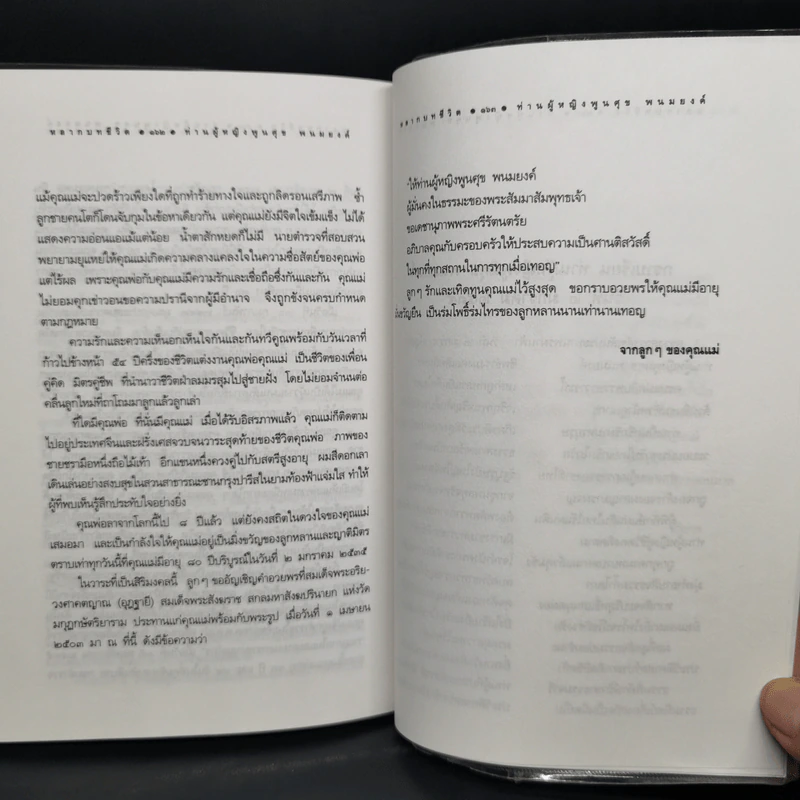 หลากบทชีวิต ● ๑๖๒ ● ท่านผู้หญิงพูนศุข พนมยงค์
แม้คุณแม่จะปวดร้าวเพียงใดที่ถูกทำร้ายทางใจและถูกลิดรอนเสรีภาพ ซ้ำ
ลูกชายคนโตก็โดนจับกุมในข้อหาเดียวกัน แต่คุณแม่ยังมีจิตใจเข้มแข็ง ไม่ได้
แสดงความอ่อนแอแม้แต่น้อย น้ำตาสักหยดก็ไม่มี นายตำรวจที่สอบสวน
พยายามยุแหย่ให้คุณแม่เกิดความคลางแคลงใจในความซื่อสัตย์ของคุณพ่อ
แต่ไร้ผล เพราะคุณพ่อกับคุณแม่มีความรักและเชื่อถือซึ่งกันและกัน คุณแม่
ไม่ยอมคุกเข่าวอนขอความปรานีจากผู้มีอำนาจ จึงถูกขังจนครบกำหนด
ตามกฎหมาย
ความรักและความเห็นอกเห็นใจกันและกันทวีคูณพร้อมกับวันเวลาที่
ก้าวไปข้างหน้า ๕๔ ปีครึ่งของชีวิตแต่งงานคุณพ่อคุณแม่ เป็นชีวิตของเพื่อน
คู่คิด มิตรคู่ชีพ ที่นำนาวาชีวิตฝ่าลมมรสุมไปสู่ชายฝั่ง โดยไม่ยอมจำนนต่อ
คลื่นลูกใหม่ที่ถาโถมมาลูกแล้วลูกเล่า
ที่ใดมีคุณพ่อ ที่นั่นมีคุณแม่ เมื่อได้รับอิสรภาพแล้ว คุณแม่ก็ติดตาม
ไปอยู่ประเทศจีนและฝรั่งเศสจวบจนวาระสุดท้ายของชีวิตคุณพ่อ ภาพของ
ชายชรามือหนึ่งถือไม้เท้า อีกแขนหนึ่งควงคู่ไปกับสตรีสูงอายุ ผมสีดอกเลา
เดินเล่นอย่างสงบสุขในสวนสาธารณะชานกรุงปารีสในยามท้องฟ้าแจ่มใส ทำให้
ผู้ที่พบเห็นรู้สึกประทับใจอย่างยิ่ง
คุณพ่อลาจากโลกนี้ไป ๘ ปีแล้ว แต่ยังคงสถิตในดวงใจของคุณแม่
เสมอมา และเป็นกำลังใจให้คุณแม่อยู่เป็นมิ่งขวัญของลูกหลานและญาติมิตร
ตราบเท่าทุกวันนี้ที่คุณแม่มีอายุ ๘๐ ปีบริบูรณ์ในวันที่ ๒ มกราคม ๒๕๓๕
ในวาระที่เป็นสิริมงคลนี้ ลูกๆ ขออัญเชิญคำอวยพรที่สมเด็จพระอริย-
วงศาคตญาณ (อุฏฐายี) สมเด็จพระสังฆราช สกลมหาสังฆปรินายก แห่งวัด
มกุฏกษัตริยาราม ประทานแก่คุณแม่พร้อมกับพระรูป เมื่อวันที่ ๑ เมษายน
๒๕๐๓ มา ณ ที่นี้ ดังมีข้อความว่า
หลากบทชีวิต ● ๑๖๓ ● ท่านผู้หญิงพูนศุข พนมยงค์
"ให้ท่านผู้หญิงพูนศุข พนมยงค์
ผู้มั่นคงในธรรมะของพระสัมมาสัมพุทธเจ้า
ขอเดชานุภาพพระศรีรัตนตรัย
อภิบาลคุณกับครอบครัวให้ประสบความเป็นศานติสวัสดิ์
ในทุกที่ทุกสถานในการทุกเมื่อเทอญ"
ลูกๆ รักและเทิดทูนคุณแม่ไว้สูงสุด ขอกราบอวยพรให้คุณแม่มีอายุ
มั่นขวัญยืน เป็นร่มโพธิ์ร่มไทรของลูกหลานนานเท่านานเทอญ
จากลูกๆ ของคุณแม่